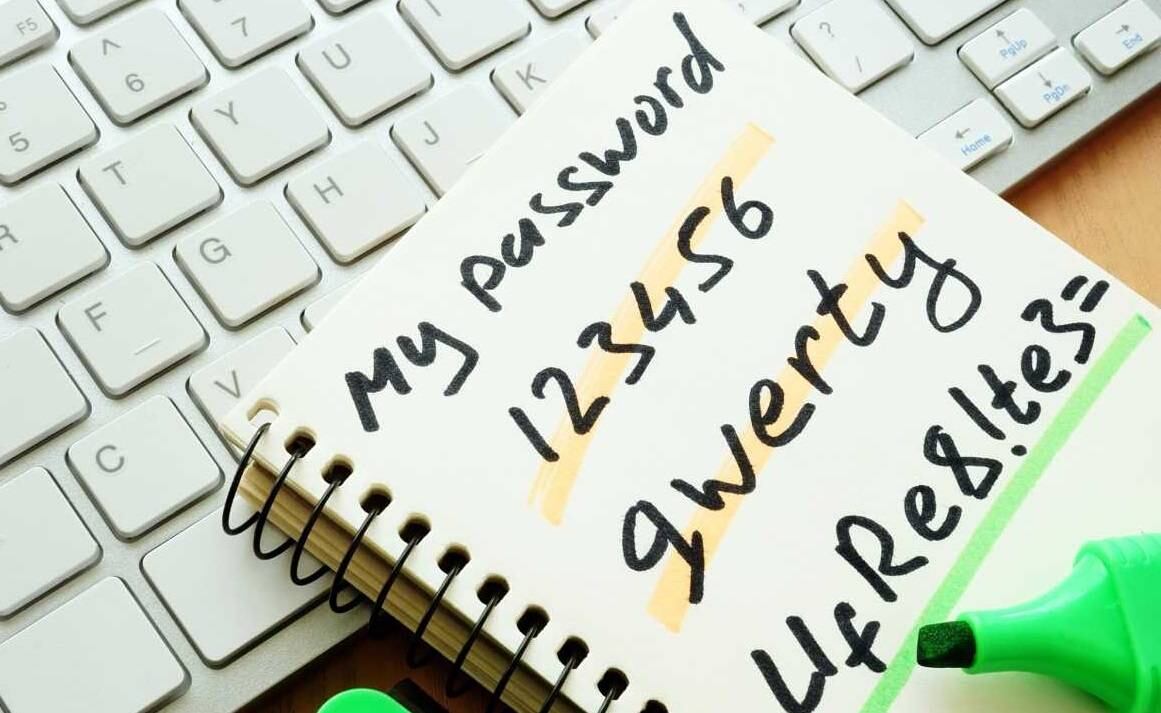 My password
123456
qwerty
UfRe8!te3=
F5
^
6
7
U
I
K
?
/
PgUp
End
PgDn
Home
5
T
Y
H
J
R
G
F
V
C